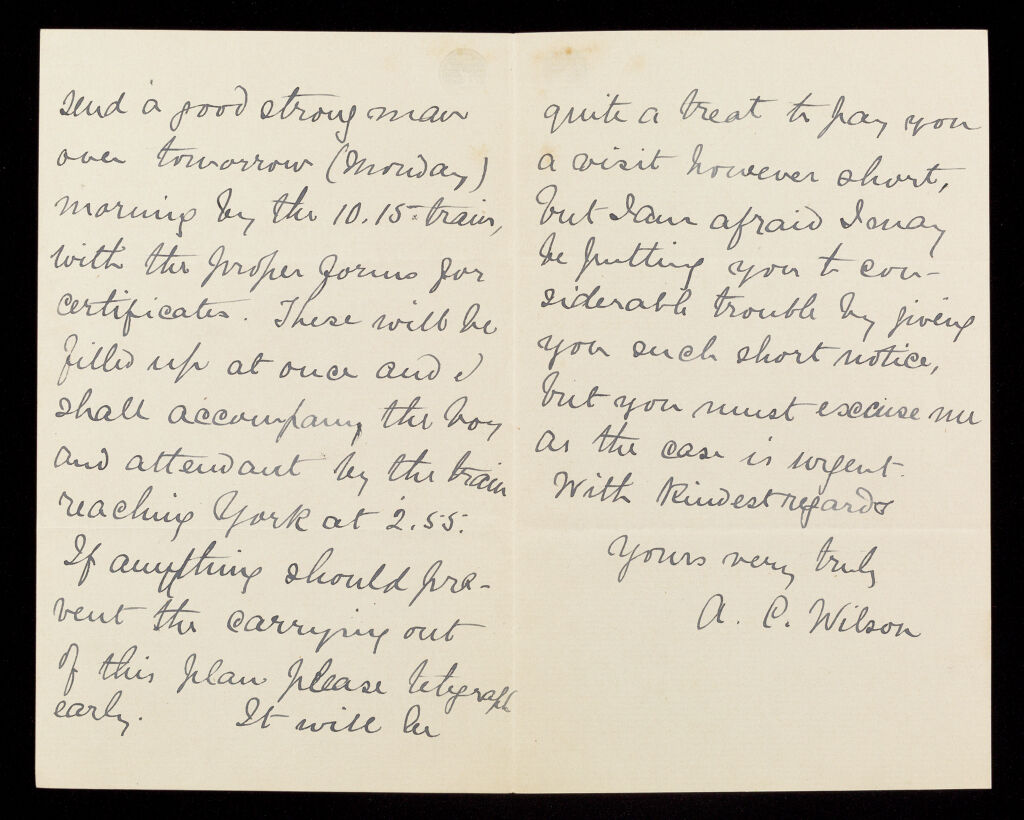 send a good strong man
over tomorrow (Monday)
morning by the 10.15 train,
with the proper forms for
certificates. These will be
filled up at once and I
shall accompany the boy
and attendant by the train
reaching York at 2.55.
If anything should pre-
vent the carrying out
of this plan please telegraph
early. It will be
quite a treat to pay you
a visit however short,
but I am afraid I may
be putting you to con-
siderable trouble by giving
you such short notice,
but you must excuse me
as the case is urgent.
With kindest regards
Yours very truly
A. C. Wilson